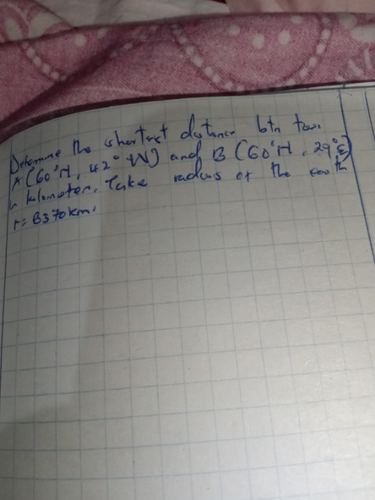 Determine the shortest distance btn town
A (60°N, 42°W) and B (60°N, 29°E)
in kilometer. Take radius of the earth
r= 6370km.